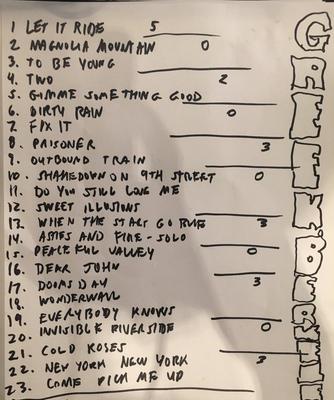 1 LET IT RIDE 5
2 MAGNOLIA MOUNTAIN 0
3. TO BE YOUNG
4. TWO 2
5. GIMME SOMETHING GOOD
6. DIRTY RAIN 0
7. FIX IT
8. PRISONER 3
9. OUTBOUND TRAIN
10. SHAKEDOWN ON 9TH STREET 0
11. DO YOU STILL LOVE ME
12. SWEET ILLUSIONS
13. WHEN THE STARS GO BLUE 3
14. ASHES AND FIRE - SOLO
15. PEACEFUL VALLEY 0
16. DEAR JOHN
17. DOOMSDAY 3
18. WONDERWALL
19. EVERYBODY KNOWS
20. INVISIBLE RIVERSIDE 0
21. COLD ROSES
22. NEW YORK NEW YORK 3
23. COME PICK ME UP